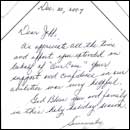 Dec. 20, 2007
Dear Jeff,
We appreciate all the time
and effort you extended on
behalf of Your
support and confidence in our
abilities was very helpful.
God Bless You and family
in this holy holiday season.
Sincerely